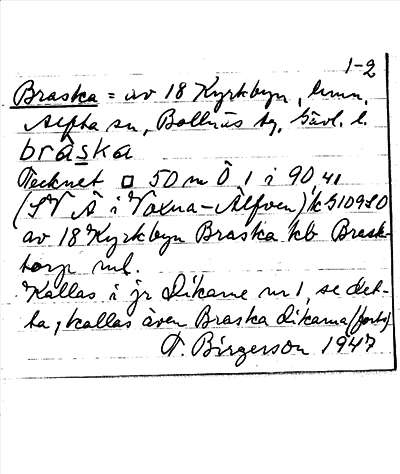 1-2
Braska = av 18 Kyrkbyn, hmn,
Alfta sn, Bollnäs tg, Gävl. l.
bråska
Tecknet □ 50 m Ö 1 i 90, 41
(S V Å i Voxna-Älfven) k 510980
av 18 Kyrkbyn Braska kb Brask-
torp ml.
Kallas i jr Dikarne nr 1, se det-
ta, kallas även Braska Dikarna (forts)
F. Birgerson 1947